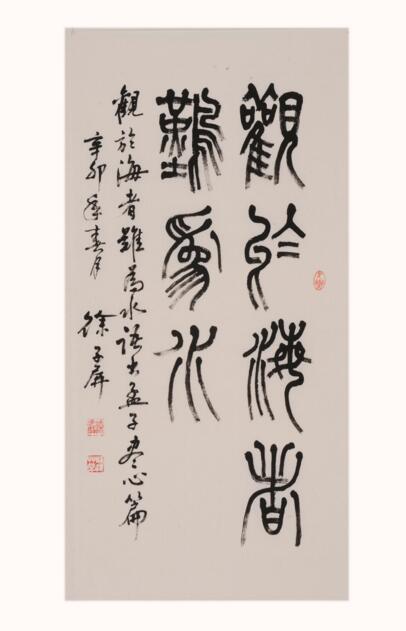 觀於海者
難為水
觀於海者難為水語出孟子尽心篇
辛卯年春月 徐子屏